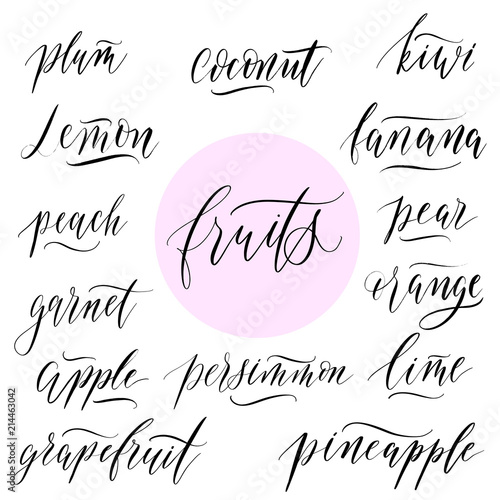 plum coconut kiwi
Lemon fanana
peach fruits pear
garnet orange
apple persimmon lime
grapefruit pineapple
Adobe Stock | #214463042